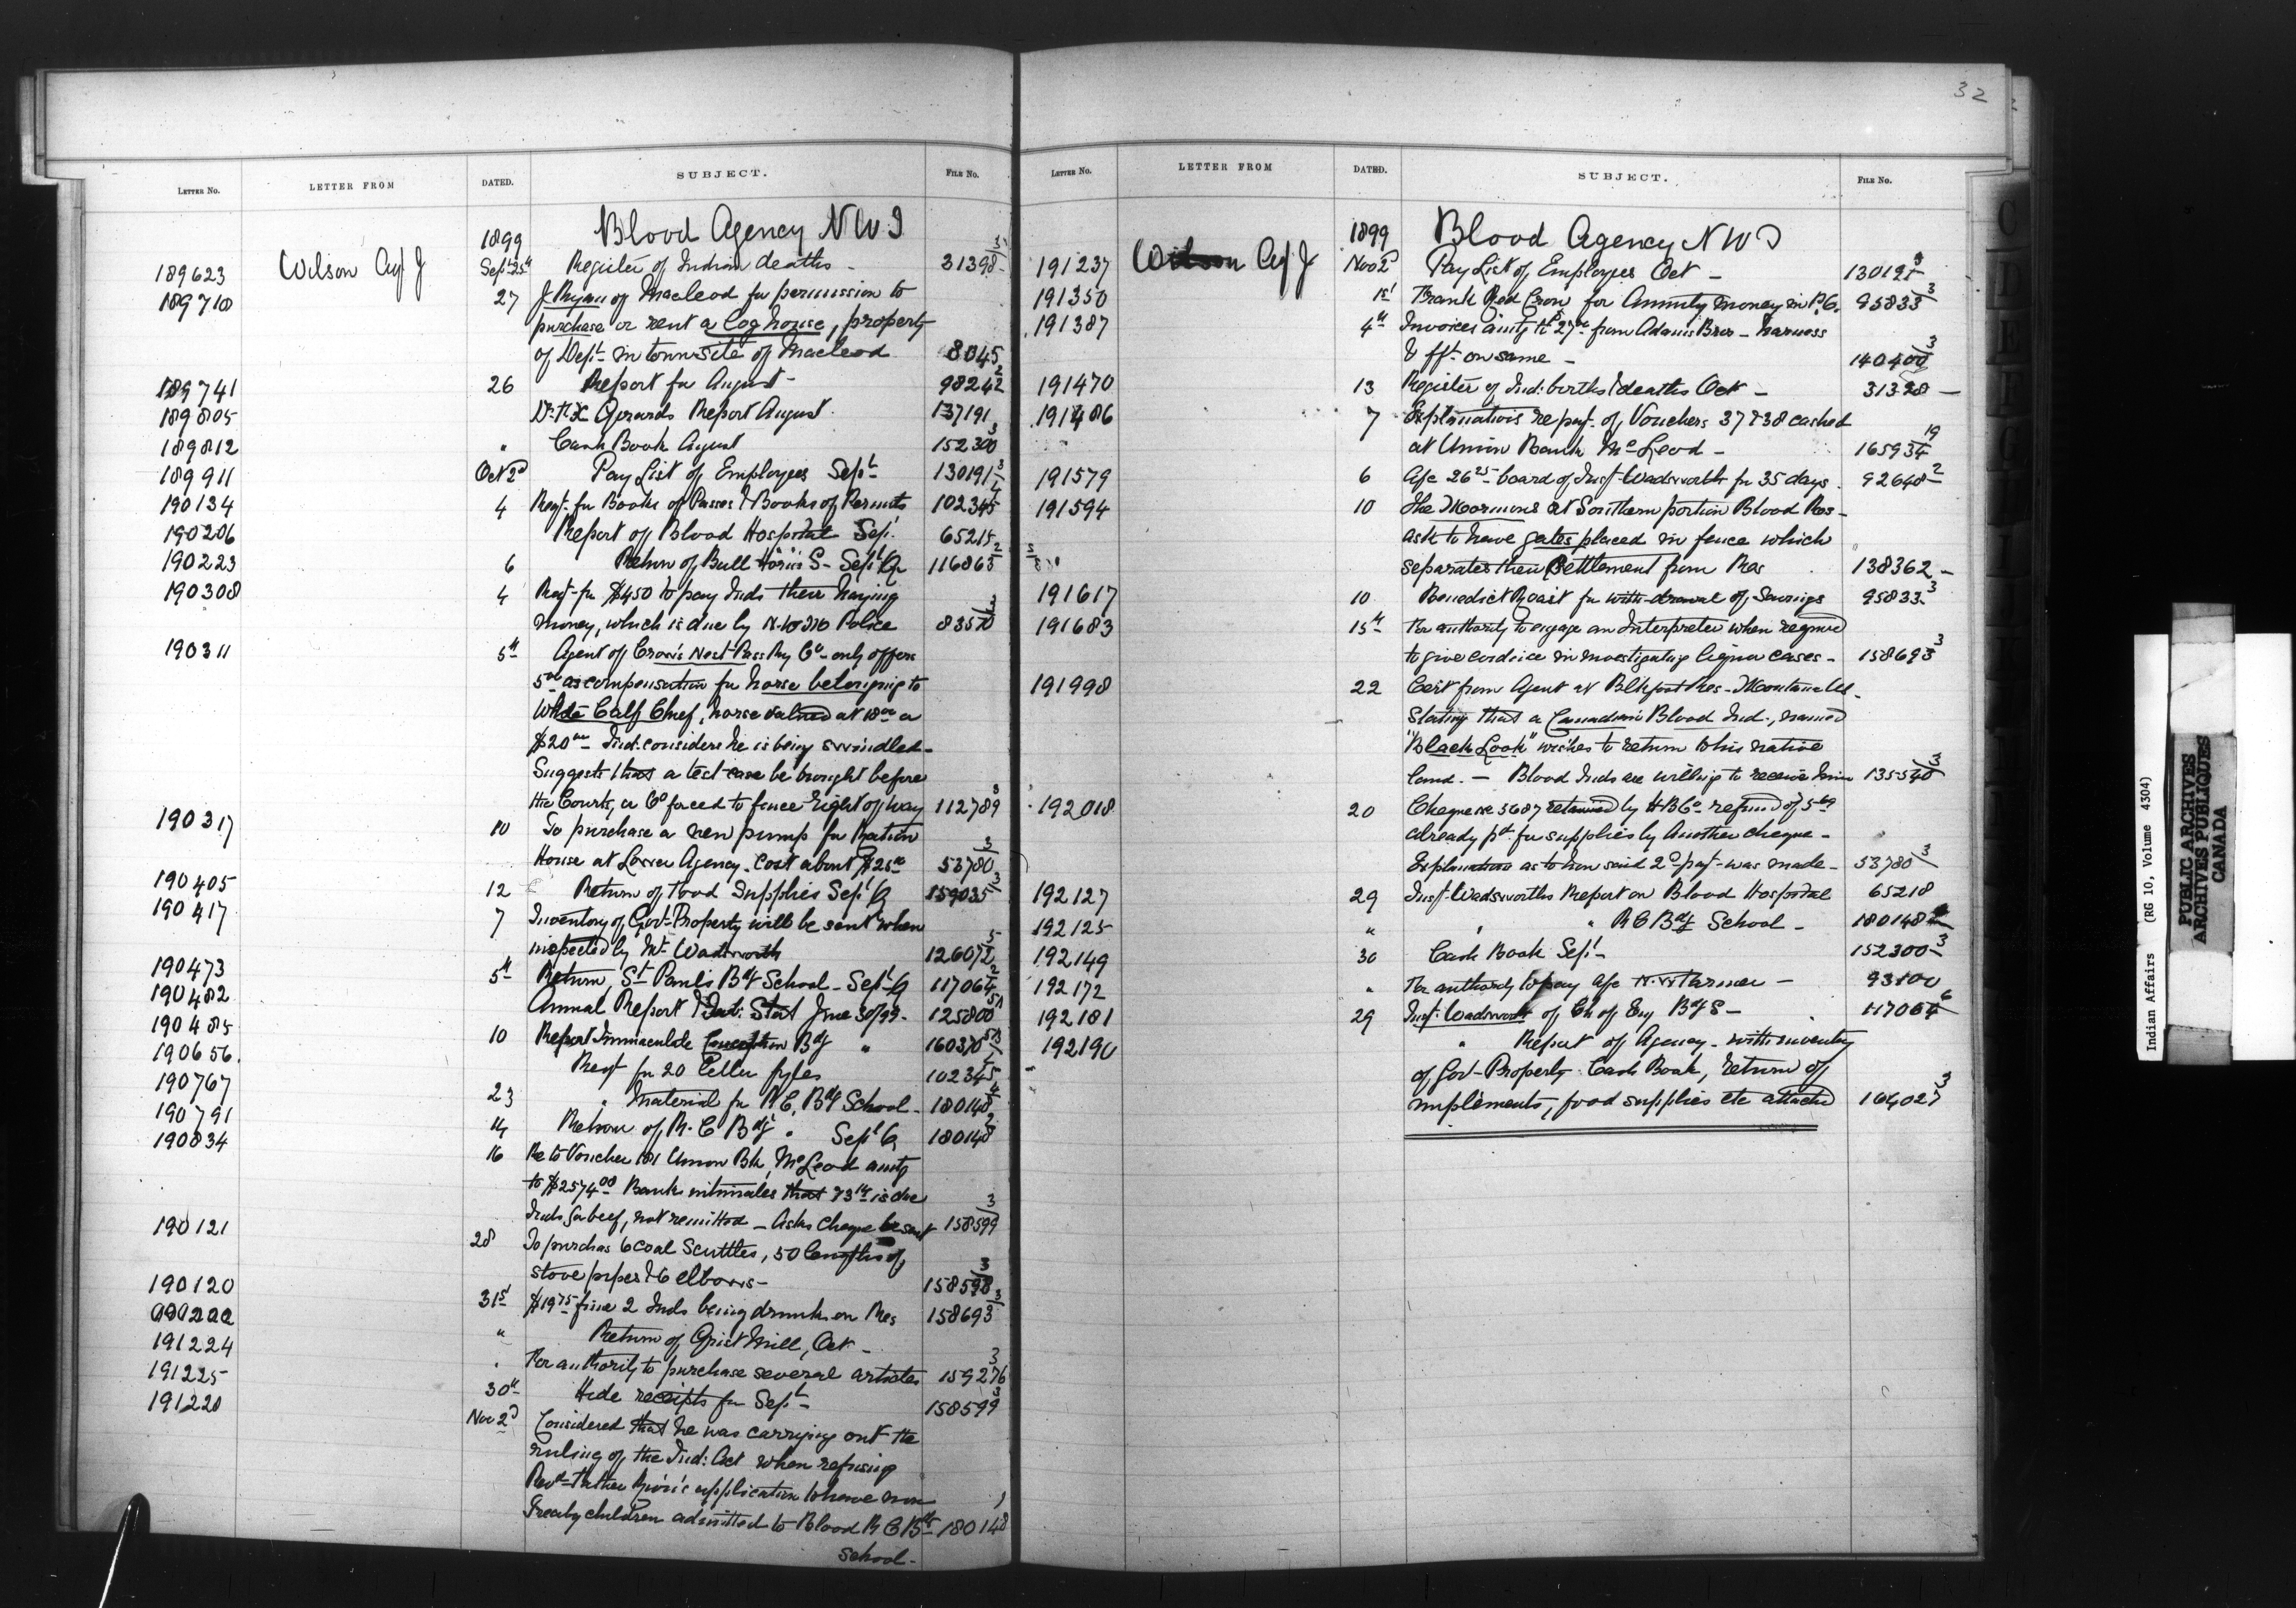 32
LETTER NO. LETTER FROM DATED. SUBJECT. FILE NO.
1899 Blood Agency NWT
189623 Wilson Agt J Sept 25th Register of Indian deaths - 31398
189710 27 J. Ryan of Macleod for permission to
purchase or rent a log house, property
of Dept in townsite of Macleod 8045
189741 26 Report for August - 98242
189805 Dr. F.X. Girards Report August 137191
189812 " Cash Book August 152300
189911 Oct 2d Pay List of Employees Sept 130191
190134 4 Reqt. for Books of Passes & Books of Permits 102345
190206 Report of Blood Hospital Sept. 65215
190223 6 Return of Bull Horns S- Sept Qr 116863
190308 4 Reqt for $450 to pay Inds their haying
money, which is due by N.W.M Police 83570
190311 5th Agent of Crow's Nest Pass Ry Co- only offers
5.00 as compensation for horse belonging to
White Calf Chief, horse valued at 18.00 or
$20.00 Ind: considers he is being swindled -
Suggests that a test case be brought before
the Courts, or Co forced to fence right of way 112789
190317 10 To purchase a new pump for Ration
House at Lower Agency. Cost about $25.00 53780
190405 12 Return of Food Supplies Sept Q 159035
190417 7 Inventory of Govt Property will be sent when
inspected by Mr. Wadsworth 126072
190473 5th Return, St Paul's Bdg School - Sept Q 117064
190482 Annual Report & Ind: Stat June 30/99 - 125800
190485 10 Report Immaculate Conception Bdg " 160370
190656. Reqt for 20 Letter fyles 102345
190767 23 " Material for R.C. Bdg School - 180148
190791 14 Return of R.C Bdg " Sept Q 180148
190834 16 Re to Voucher 181 Union Bk, McLeod amtg
to $2574.00 Bank intimates that 73 is due
Inds for beef, not remitted - Asks cheque be sent 158599
190121 28 To purchas 6 coal Scuttles, 50 lengths of
stove pipes & 6 elbows - 158598
190120 31st $19.75 fine 2 Inds being drunk on Res 158693
" Return of Grist Mill, Oct -
191224 " For authority to purchase several articles 159276
191225 30th Hide receipts for Sept - 158599
191220 Nov 2d Considered that he was carrying out the
ruling of the Ind: Act when refusing
Revd Father Rion's application to have non
Treaty children admitted to Blood R C Bdg 180148
School -
LETTER NO. LETTER FROM DATED. SUBJECT. FILE NO.
1899 Blood Agency NWT
191237 Wilson Agt J Nov 2d Pay List of Employees Oct - 130191
191350 1st Frank Red Crow for Annuity money in P.O. 95833
191387 4th Invoices amtg to 27.00 from Adams Bros - harness
& fft on same - 140400
191470 13 Register of Ind: births & deaths Oct - 31398 -
191486 7 Explanations re payt. of Vouchers 37 & 38 cashed
at Union Bank McLeod - 165934
191579 6 A/c 26.25 board of Insp. Wadsworth for 35 days. 92648
191594 10 The Mormons at Southern portion Blood Res -
ask to have gates placed in fence which
separates their Settlement from Res 138362 -
191617 10 Benedict Roast for with-drawal of Savings 95833
191683 15th For authority to engage an Interpreter when required
to give evidence in investigating liquor cases - 158693
191998 22 Cert from Agent at Blkfoot Res - Montana US.
Stating that a Canadian Blood Ind., named
"Black Look" wishes to return to his native
land. - Blood Inds are willing to receive him 135540
192018 20 Cheque no 5687 returned by H B Co refund of
already pd. for supplies by Another cheque -
Explanation as to how said 2d payt was made - 53780
192127 29 Insp. Wadsworths Report on Blood Hospital 65218
192125 " " " R C Bdg School - 180148
192149 30 Cash Book Sept - 152300
192172 " For authority to pay a/c Farmer - 93100
192181 29 Insp. Wadsworth of Ch of Eng Bdg S - 117064
192190 " Report of Agency - with inventory
of Gov- Property Cash Book, return of
implements, food supplies etc attached 164027
Indian Affairs (RG 10, Volume 4304)
PUBLIC ARCHIVES
ARCHIVES PUBLIQUES
CANADA